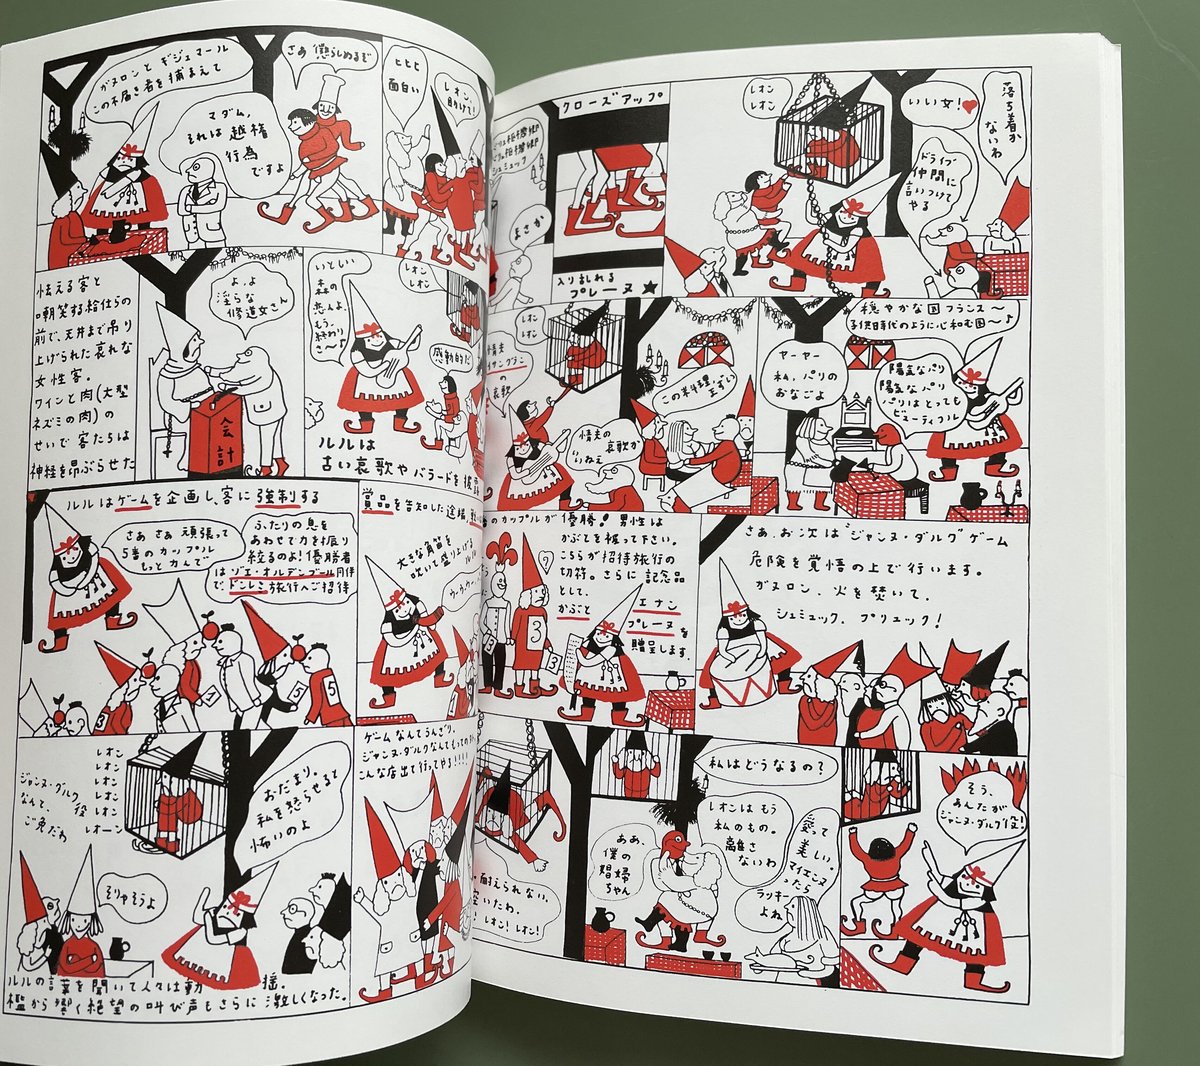 ガヌロンとギジェマール
この不届き者を捕まえて
マダム、
それは越権
行為
ですよ
さあ懲らしめるぞ
ヒヒヒ
面白い
レオン、
助けて!
怯える客と
嘲笑する給仕らの
前で、天井まで吊り
上げられた哀れな
女性客。
ワインと肉(大型
ネズミの肉)の
せいで客たちは
神経を昂ぶらせた
よ、よ、
淫らな
修道女さん
会計
いとしい
森の
恋人よ、
もう、
終わり
さ〜♪
レオン
レオン
感動的だ
ルルは
古い哀歌やバラードを披
ルルはゲームを企画し、客に強制する
さあさあ頑張って
5番のカップル
もっと力んで
ふたりの息を
あわせて力を振り
絞るのよ!優勝者
はゾエ・オルデンブール同伴
で、ドンレミ旅行へご招待
3
5
5
賞品を告知した途端、
大きな角笛を
吹いて盛り上げる
ルル
レオン
レオン
レオン
レオン
レオン
レオーン
ジャンヌ・ダルク
なんて、役
ご免だわ
おだまり。
私を怒らせると
怖いのよ
そりゃそうよ
ルルの言葉を聞いて人々は動揺。
檻から響く絶望の叫び声もさらに激しくなった。
ゲームなんてうんざり。
ジャンヌ・ダルクなんてもっての
こんな店出て行ってやる!!!!
シュミュック
まさか
クローズアップ
入り乱れる
プレーヌ★
レオン
レオン
いい女!❤
落ち着か
ないわ
ドライブ
仲間に
言いつけて
やる
レオン
レオン
の
哀歌
情夫の
哀歌か
いいねえ
この料理、まずい
ヤーヤー
私、パリの
おなごよ
穏やかな国フランス〜
子供時代のように心和む国〜♪
陽気なパリ
陽気なパリ
パリはとっても
ビューティフル
番のカップルが優勝!男性は
かぶとを被って下さい。
こちらが招待旅行の
切符。さらに記念品
として、
かぶと
エナン
プレーヌを
贈呈します。
3
3
さあ、お次はジャンヌ・ダルクゲーム
危険を覚悟の上で行います。
ガヌロン、火を焚いて。
シュミュック、プリュック!
耐えられない。
レオン!レオン!
私はどうなるの?
ああ、
僕の
娼婦
ちゃん
レオンはもう
私のもの。
離さ
ないわ
愛って
美しい。
マイエンヌ
ったら
ラッキー
よね
そう、
あんたが
ジャンヌ・ダルク役!